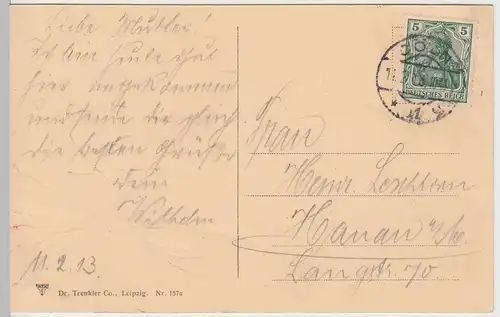 Liebe Mutter!
Ich bin heute
hier angekommen
und sende dir gleich
die besten Grüße
dein
Wilhelm
11.2.13.
Dr. Trenkler Co., Leipzig. Nr. 157a
5 5
DEUTSCHES REICH
Frau
Heinr.
Hanau a/M.
Langstr. 70.